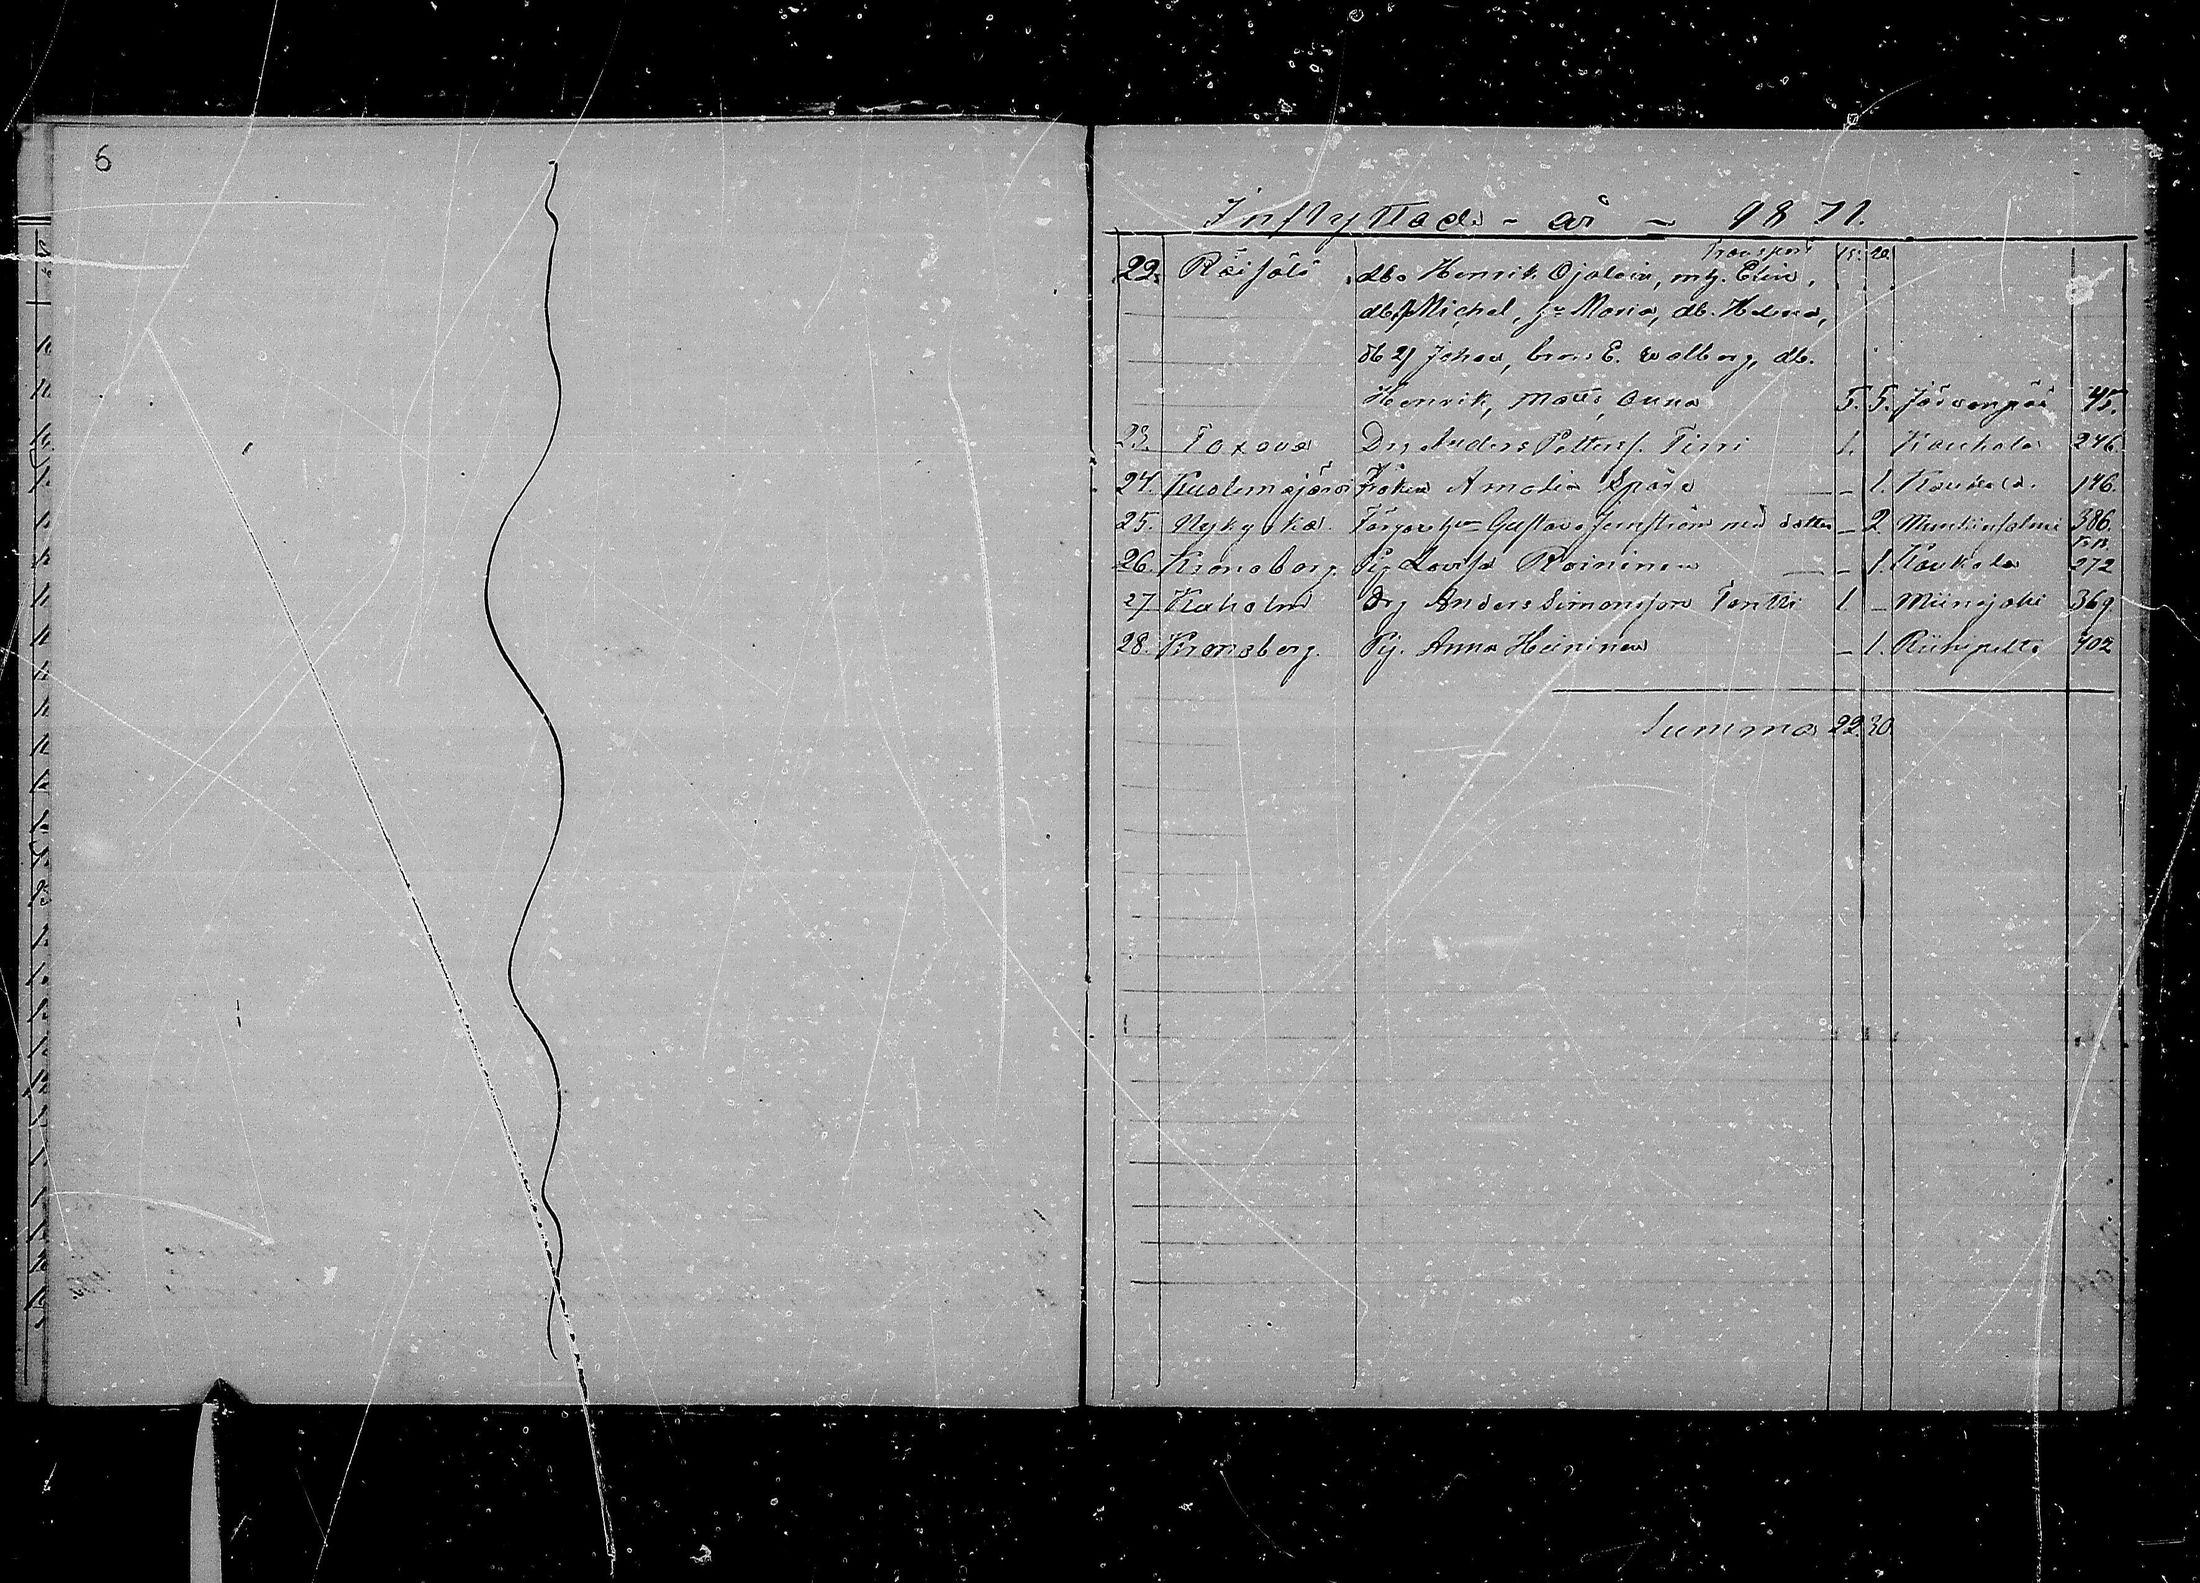 6
Inflyttade - år - 1871.
Transport 15. 20
22. Räisälä db. Henrik Ojalain, m hu. Elin,
db. Michel, hu Maria, db. Helena,
Johan, E. Walborg, db.
Henrik, Matts, Anna 5. 5. Järvenpää 45.
23. Toxova Drg Anders Pettersf. Tirri 1. Kaukola 246.
24. Kuolemajärvi Fröken Amalia Spåre - 1. Kaukola. 146.
25. Nykyrka Färgare hu Gustava Jernström med dotter - 2. Munkinsalmi 386.
26. Kronoborg. Pig Lovisa Roininen - 1. Kaukola 272
27 Kexholm Drg Anders Simonsson Tontti 1 - Miinojoki 369.
28. Kronoborg. Pig. Anna Heininen - 1. Riihipelto 402
Summa 22 30